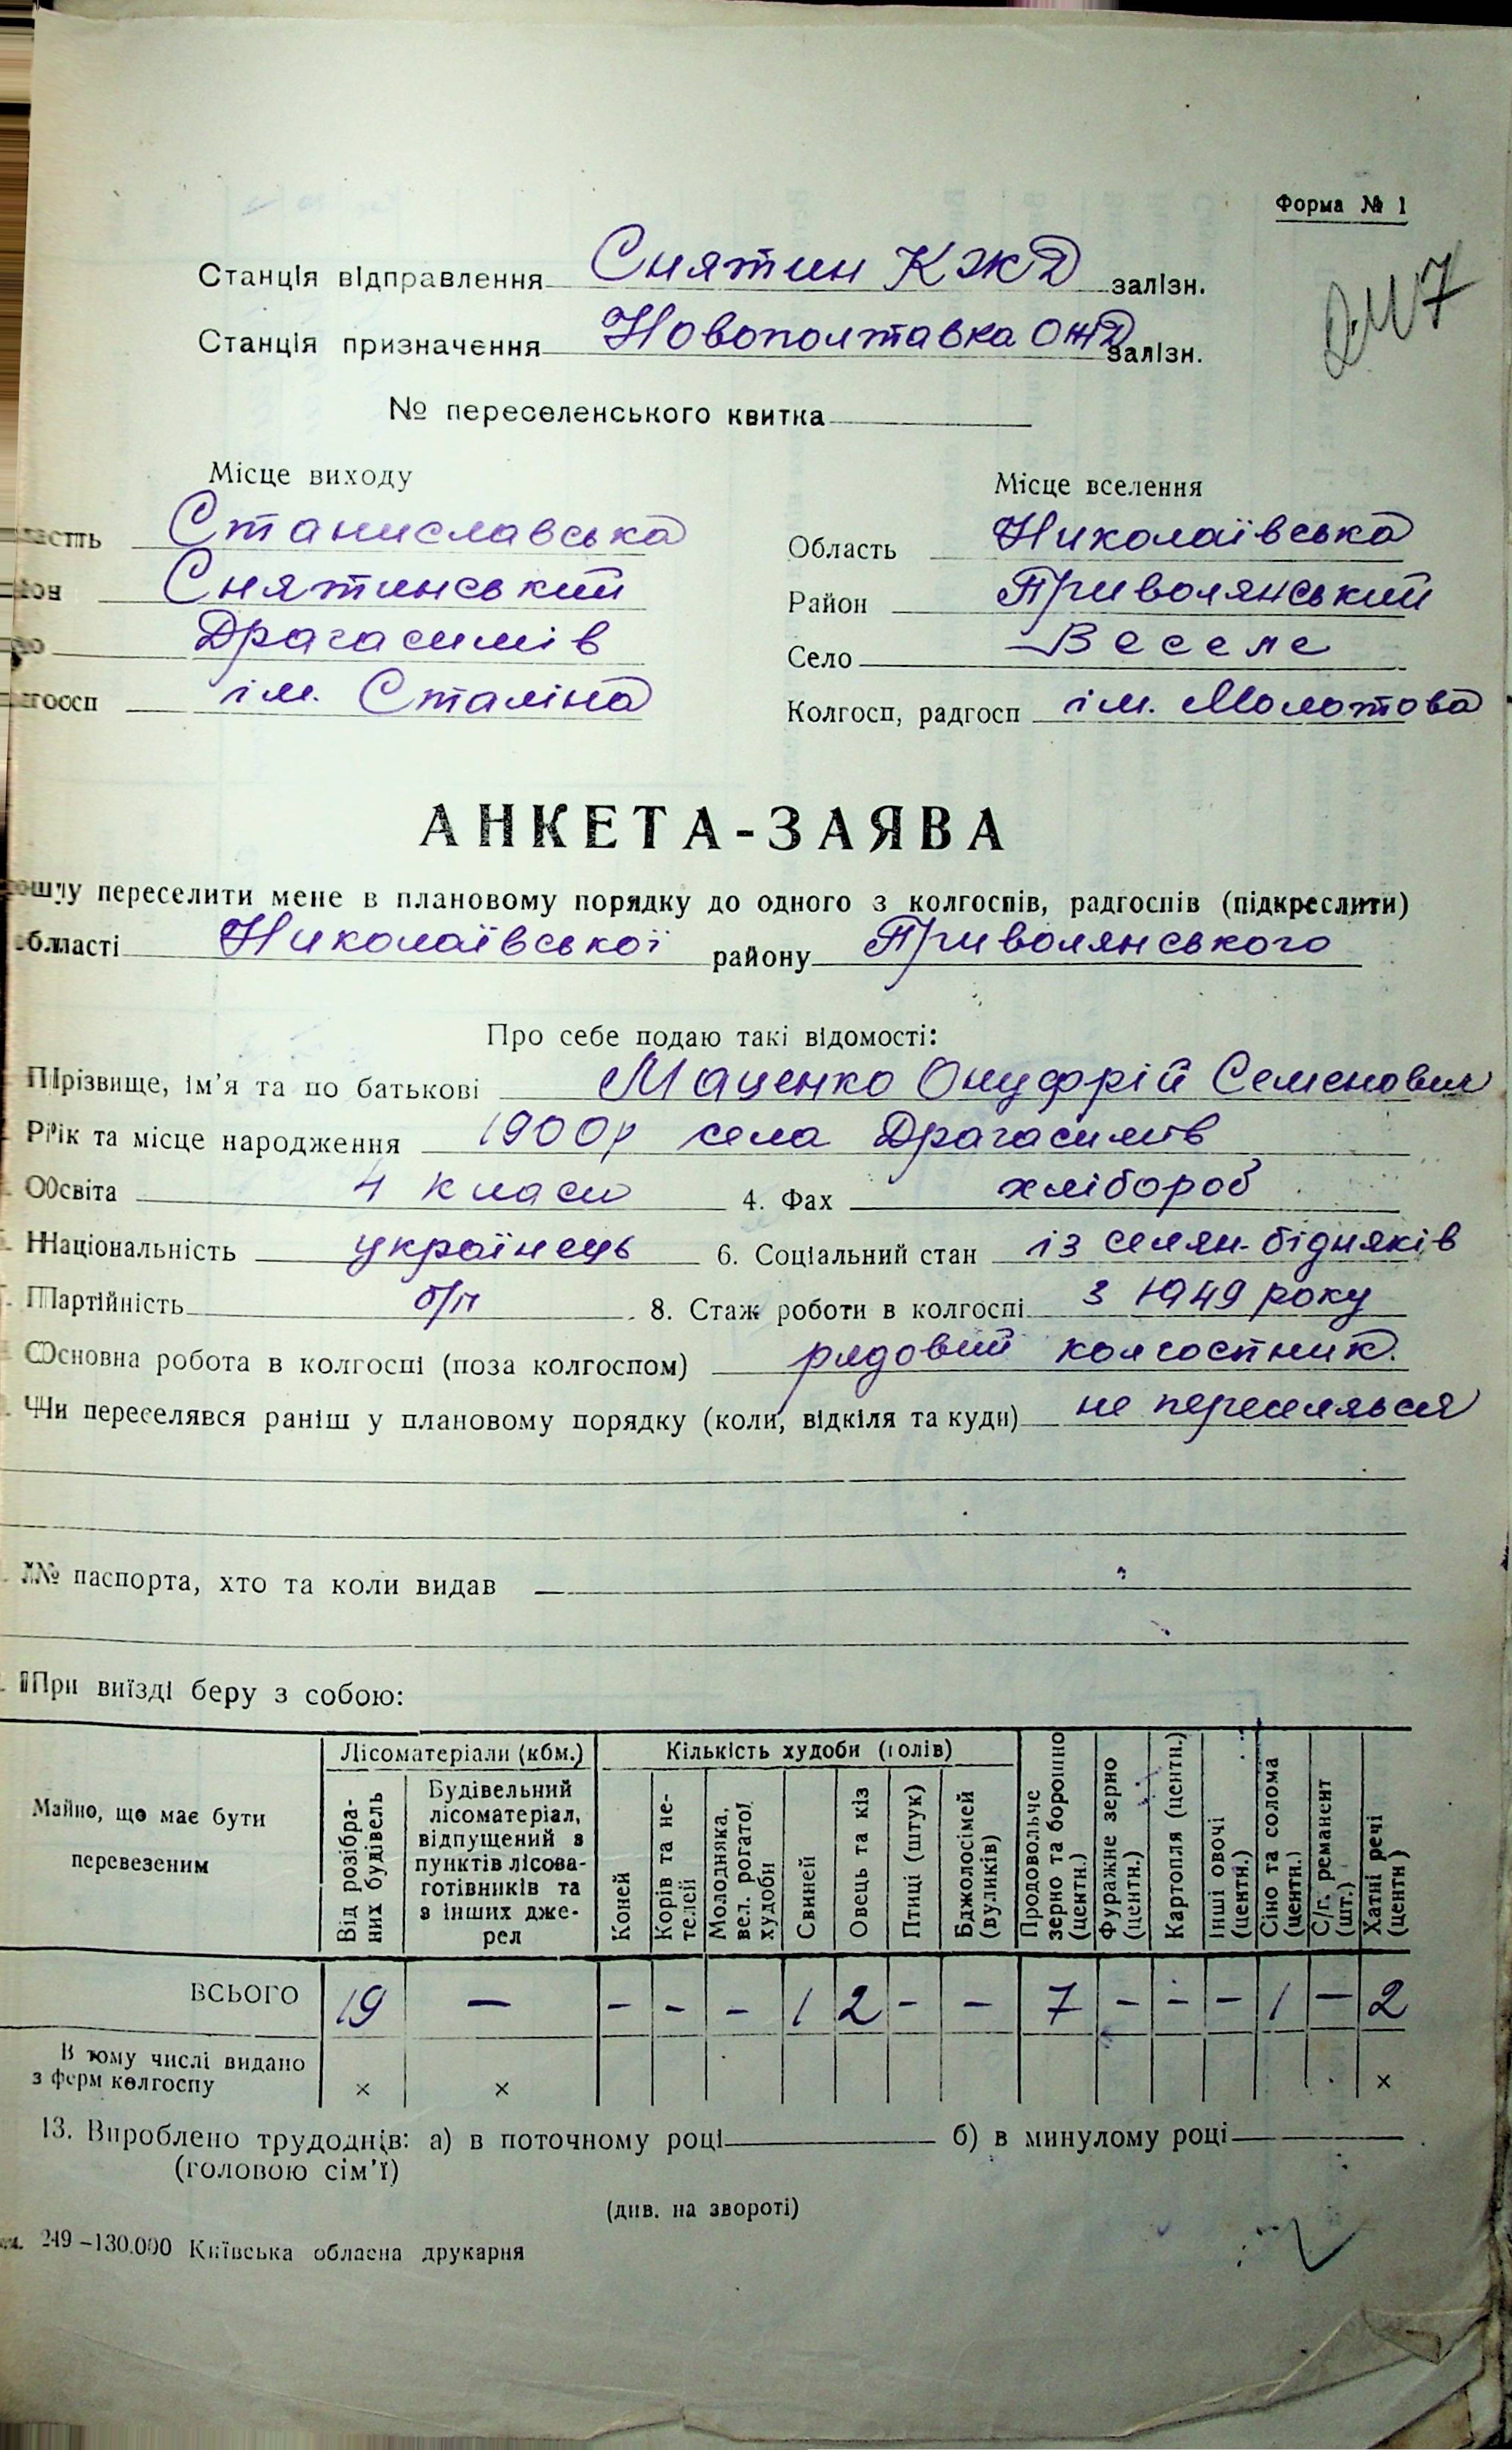 Форма № 1
Станція відправлення Снятин КЖД залізн.
Станція призначення Новополтавка ОЖД залізн.
№ переселенського квитка
Місце виходу Місце вселення
Станиславська Область Николаївська
Снятинський Район Приволянський
Драгасимів Село Веселе
ім. Сталіна Колгосп, радгосп ім. Молотова
АНКЕТА-ЗАЯВА
переселити мене в плановому порядку до одного з колгоспів, радгоспів (підкреслити)
області Николаївської району Приволянського
Про себе подаю такі відомості:
Прізвище, ім'я та по батькові Маценко Онуфрій Семенович
Рік та місце народження 1900р села Драгасимів
Освіта 4 класи 4. Фах хлібороб
Національність українець 6. Соціальний стан із селян-бідняків
Партійність б/п 8. Стаж роботи в колгоспі з 1949 року
Основна робота в колгоспі (поза колгоспом) рядовий колгоспник.
Чи переселявся раніш у плановому порядку (коли, відкіля та куди) не переселявся
№ паспорта, хто та коли видав
При виїзді беру з собою:
Майно, що має бути перевезеним
Лісоматеріали (кбм.) Кількість худоби (голів)
Від розібраних будівель
Будівельний лісоматеріал, відпущений з пунктів лісозаготівників та з інших джерел
Коней
Корів та нетелей
Молодняка, вел. рогатої худоби
Свиней
Овець та кіз
Птиці (штук)
Бджолосімей (вуликів)
Продовольче зерно та борошно (центн.)
Фуражне зерно (центн.)
Картопля (центн.)
Інші овочі (центн.)
Сіно та солома (центн.)
С/г. реманент (шт.)
Хатні речі (центн)
ВСЬОГО 19 — – – – 1 2 – – 7 – – – 1 — 2
В тому числі видано з ферм колгоспу × × ×
13. Вироблено трудоднів: а) в поточному році б) в минулому році
(головою сім'ї)
(див. на звороті)
249–130.000 Київська обласна друкарня